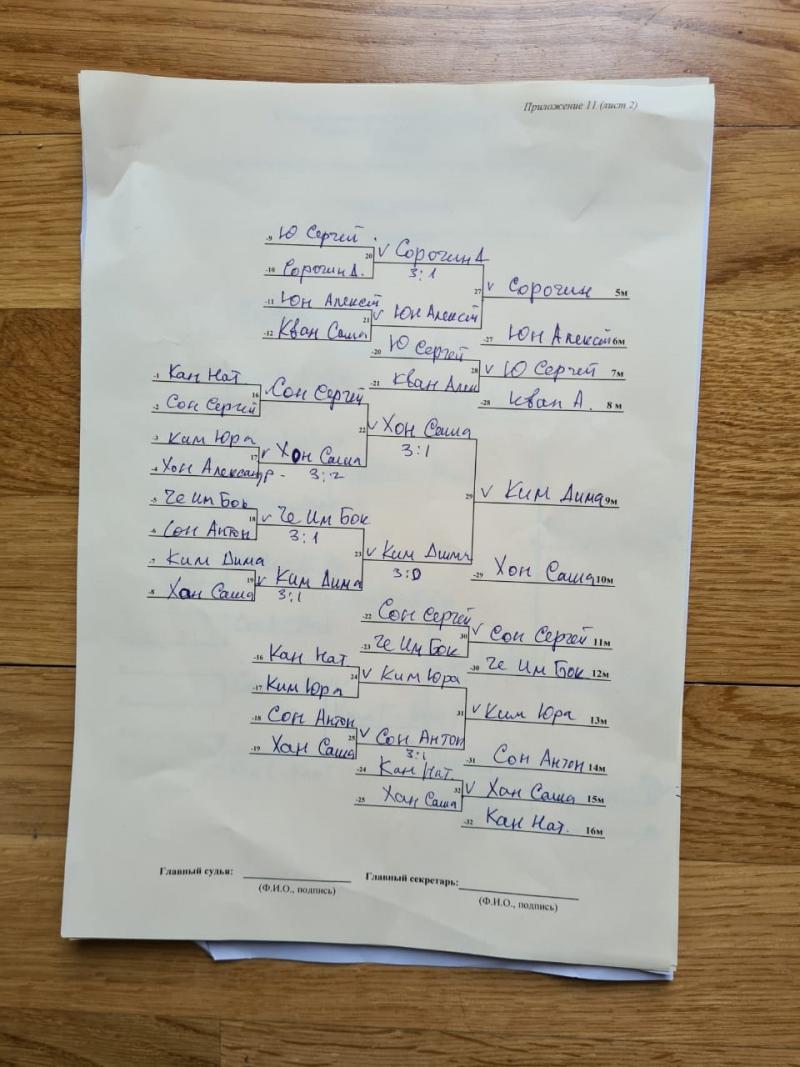 Приложение 11 (лист 2)
-9 Ю Сергей
20 v Сорочин Д
-10 Сорочин Д. 3:1
27 v Сорочин 5м
-11 Юн Алексей
21 v Юн Алексей
-12 Кван Саша
-27 Юн Алексей 6м
-20 Ю Сергей
28 v Ю Сергей 7м
-21 Кван Ален
-28 Кван А. 8 м
-1 Кан Нат.
16 Сон Сергей
-2 Сон Сергей
22 v Хон Саша
3:1
-3 Ким Юра
17 v Хон Саша
-4 Хон Александр - 3:2
29 v Ким Дима 9м
-5 Че Им Бок
18 v Че Им Бок
-6 Сон Антон 3:1
23 v Ким Дима
3:0
-7 Ким Дима
19 v Ким Дима
-8 Хан Саша 3:1
-29 Хон Саша 10м
-22 Сон Сергей
30 v Сон Сергей 11м
-23 Че Им Бок
-30 Че Им Бок 12м
-16 Кан Нат
24 v Ким Юра
-17 Ким Юра
31 v Ким Юра 13м
-18 Сон Антон
25 v Сон Антон
-19 Хан Саша 3:1
-31 Сон Антон 14м
-24 Кан Нат.
32 v Хан Саша 15м
-25 Хан Саша
-32 Кан Нат. 16м
Главный судья:
(Ф.И.О., подпись)
Главный секретарь:
(Ф.И.О., подпись)